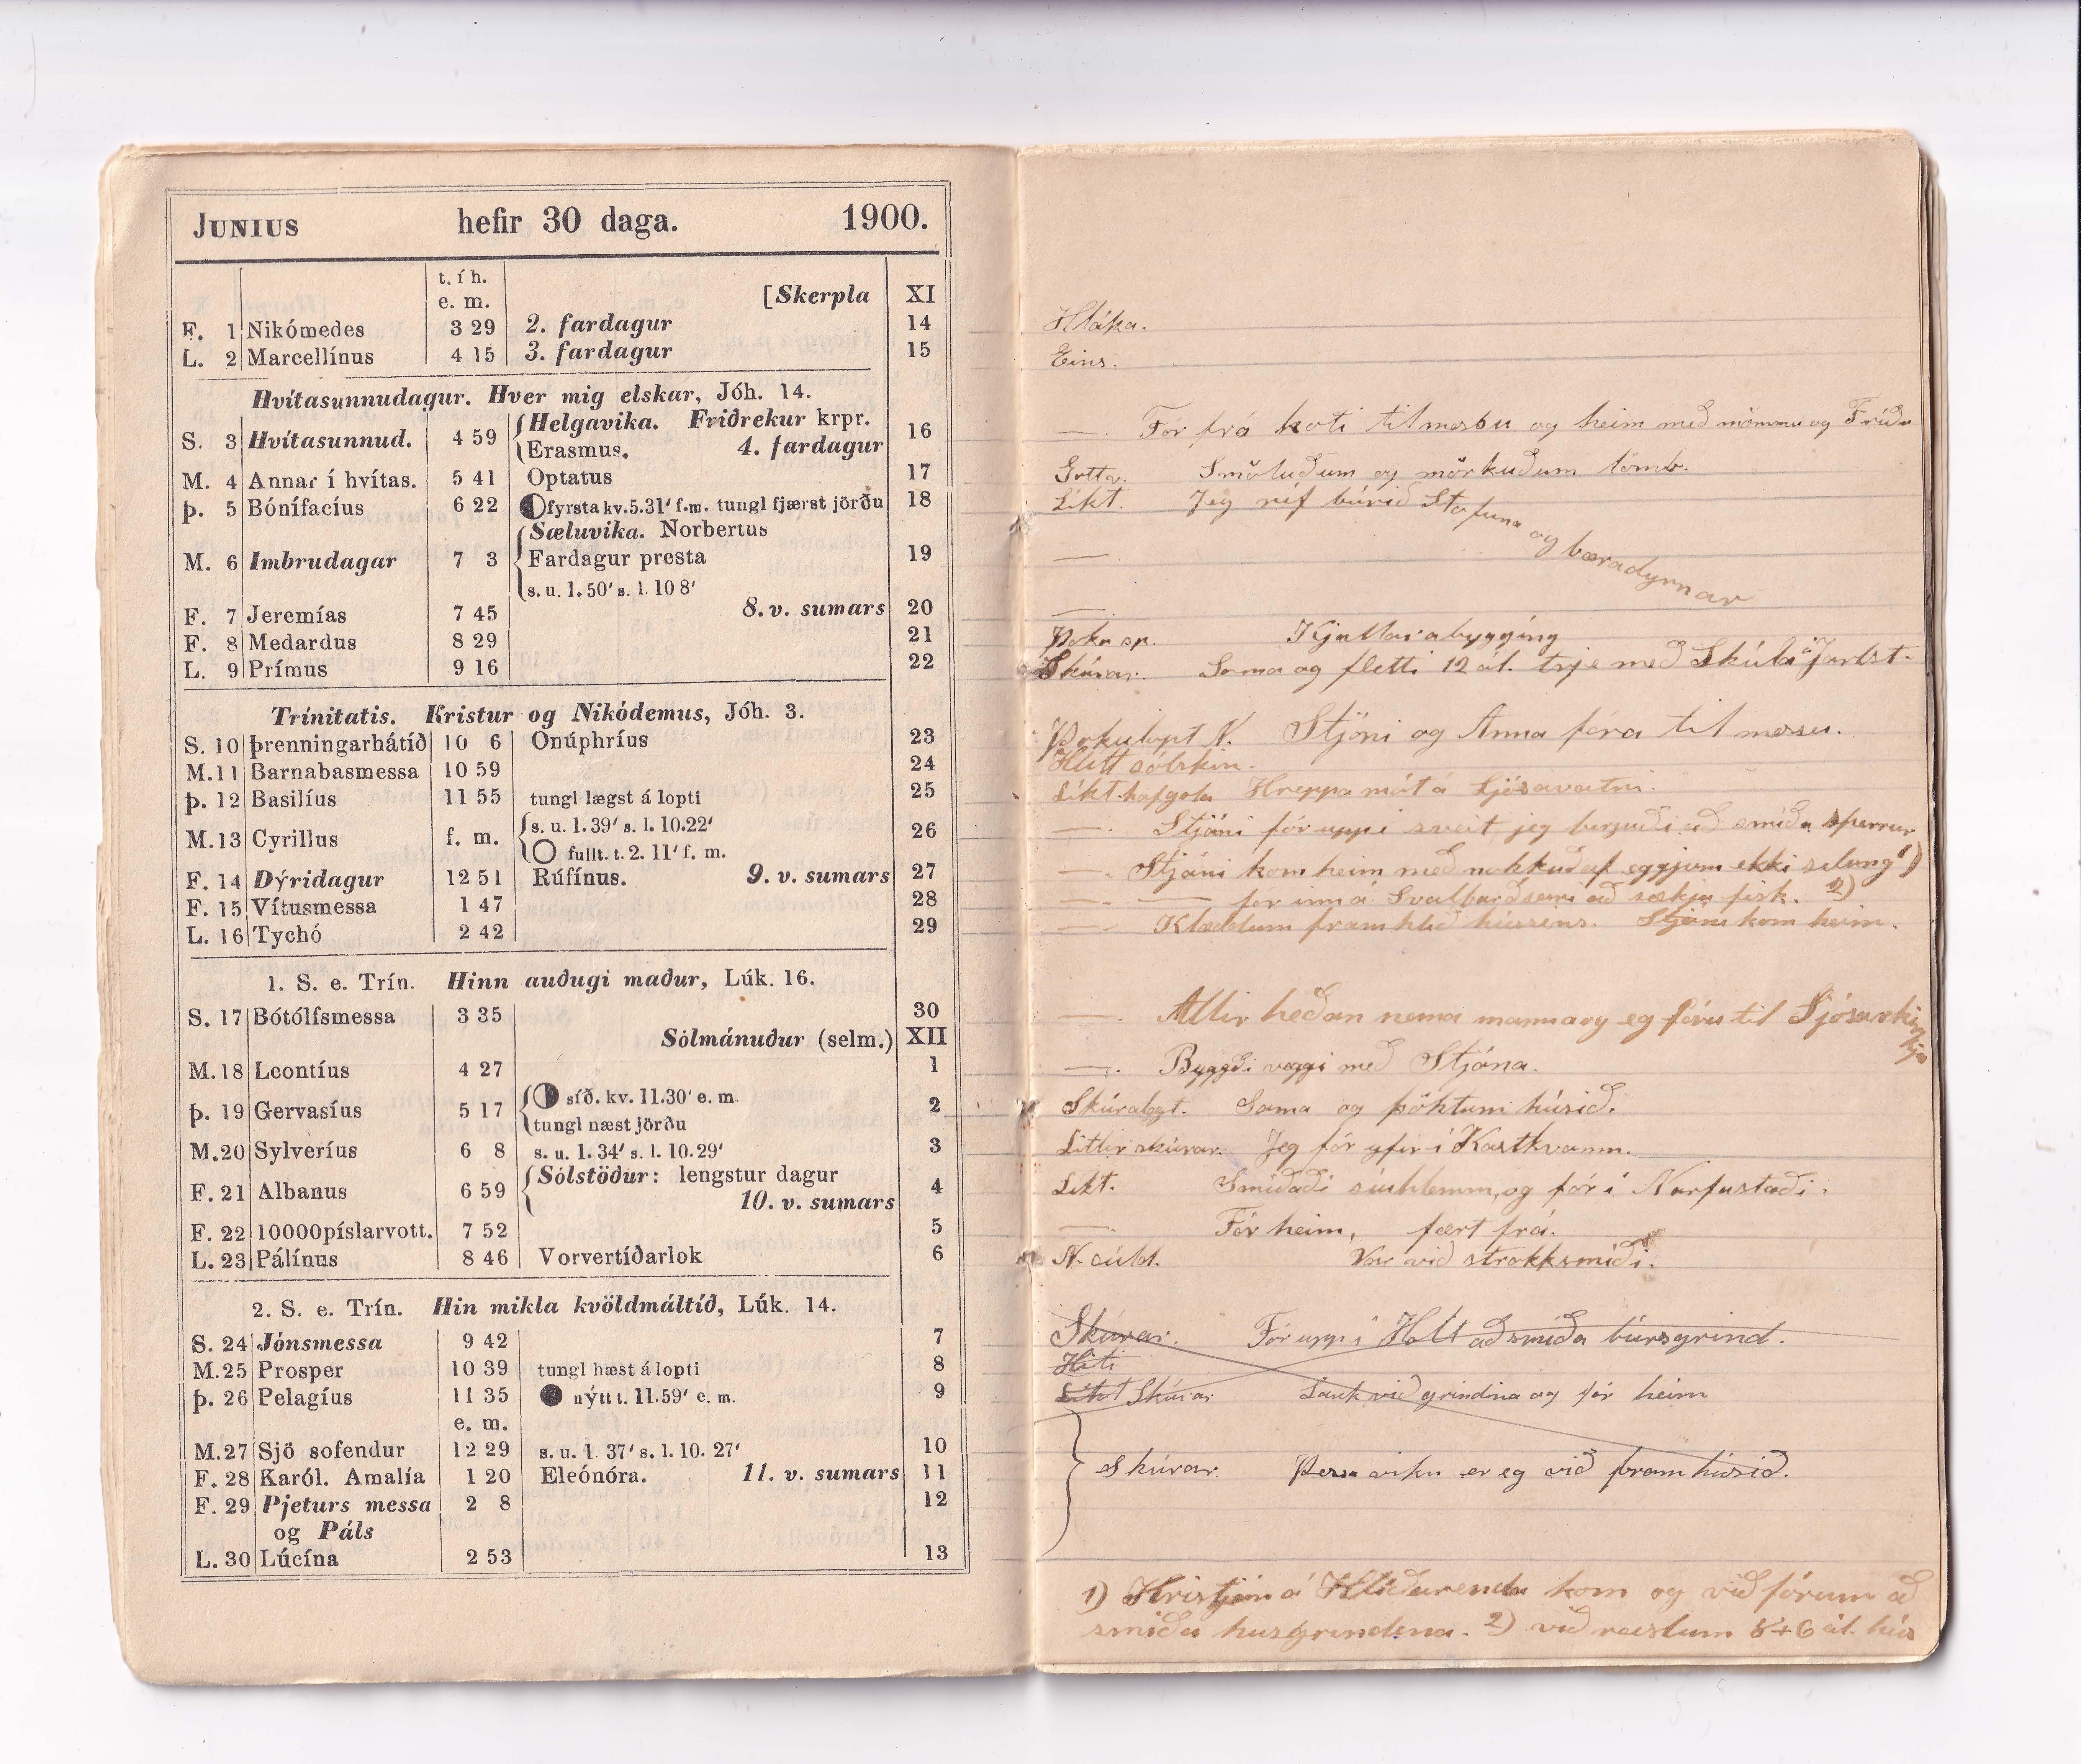 JUNIUS hefir 30 daga. 1900.
t. í h.
e. m. [Skerpla XI
F. 1 Nikómedes 3 29 2. fardagur 14
L. 2 Marcellínus 4 15 3. fardagur 15
Hvítasunnudagur. Hver mig elskar, Jóh. 14.
Helgavika. Friðrekur krpr.
S. 3 Hvítasunnud. 4 59 16
Erasmus. 4. fardagur
M. 4 Annar í hvítas. 5 41 Optatus 17
Þ. 5 Bónífacíus 6 22 fyrsta kv. 5.31′ f.m. tungl fjærst jörðu 18
Sæluvika. Norbertus
M. 6 Imbrudagar 7 3 Fardagur presta 19
s. u. 1. 50′ s. l. 10 8′
F. 7 Jeremías 7 45 8. v. sumars 20
F. 8 Medardus 8 29 21
L. 9 Prímus 9 16 22
Trínitatis. Kristur og Nikódemus, Jóh. 3.
S. 10 Þrenningarhátíð 10 6 Onúphríus 23
M. 11 Barnabasmessa 10 59 24
Þ. 12 Basilíus 11 55 tungl lægst á lopti 25
s. u. 1. 39′ s. l. 10.22′
M. 13 Cyrillus f. m. 26
fullt. t. 2. 11′ f. m.
F. 14 Dýridagur 12 51 Rúfínus. 9. v. sumars 27
F. 15 Vítusmessa 1 47 28
L. 16 Tychó 2 42 29
1. S. e. Trín. Hinn auðugi maður, Lúk. 16.
S. 17 Bótólfsmessa 3 35 30
Sólmánuður (selm.) XII
M. 18 Leontíus 4 27 1
síð. kv. 11.30′ e. m.
Þ. 19 Gervasíus 5 17 2
tungl næst jörðu
M. 20 Sylveríus 6 8 s. u. 1. 34′ s. l. 10.29′ 3
Sólstöður: lengstur dagur
F. 21 Albanus 6 59 4
10. v. sumars
F. 22 10000píslarvott. 7 52 5
L. 23 Pálínus 8 46 Vorvertíðarlok 6
2. S. e. Trín. Hin mikla kvöldmáltíð, Lúk. 14.
S. 24 Jónsmessa 9 42 7
M. 25 Prosper 10 39 tungl hæst á lopti 8
Þ. 26 Pelagíus 11 35 nýtt t. 11.59′ e. m. 9
e. m.
M. 27 Sjö sofendur 12 29 s. u. 1. 37′ s. l. 10. 27′ 10
F. 28 Karól. Amalía 1 20 Eleónóra. 11. v. sumars 11
F. 29 Pjeturs messa 2 8 12
og Páls
L. 30 Lúcína 2 53 13
Hláka.
Eins.
— Fór frá koti til messu og heim með mömmu og Fríðu
Gottv. Smöluðum og mörkuðum lömb.
Líkt. Jeg reif búrið Stofuna og bæradyrnar
—
—
Þoka sp. Kjallarabygging
Skúrar. Sama og fletti 12 ál. trje með Skúla á Jarlst.
Þokulopt N. Stjáni og Anna fóru til messu.
Hlítt sólskin.
Líkt. hafgola Hreppamót á Ljósavatni.
— Stjáni fór uppi sveit, jeg byrjaði að smíða sperrur
— Stjáni kom heim með nokkuð af eggjum ekki silung 1)
— — fór inn á Svalbarðseyri að sækja fisk. 2)
— Klæddum framhlið hússens. Stjáni kom heim.
— Allir heðan nema mamma og eg fóru til Ljósavkirkju
— Byggði veggi með Stjána.
Skúralegt. Sama og þöktum húsið.
Litlir skúrar. Jeg fór yfir í Kastkvamm.
Líkt. Smíðaði og fór í Narfastaði.
— Fór heim, fært frá.
N. Var við strokksmíði.
Skúrar. Fór upp í Holt að smíða búrsgrind.
Hiti
Líkt Skúrar Lauk við grindina og fór heim
Skúrar. Þessa viku er eg við framhúsið.
1) Kristján á Hlíðarenda kom og við fórum að
smíða husgrindena. 2) við reistum 8+6 ál. hús